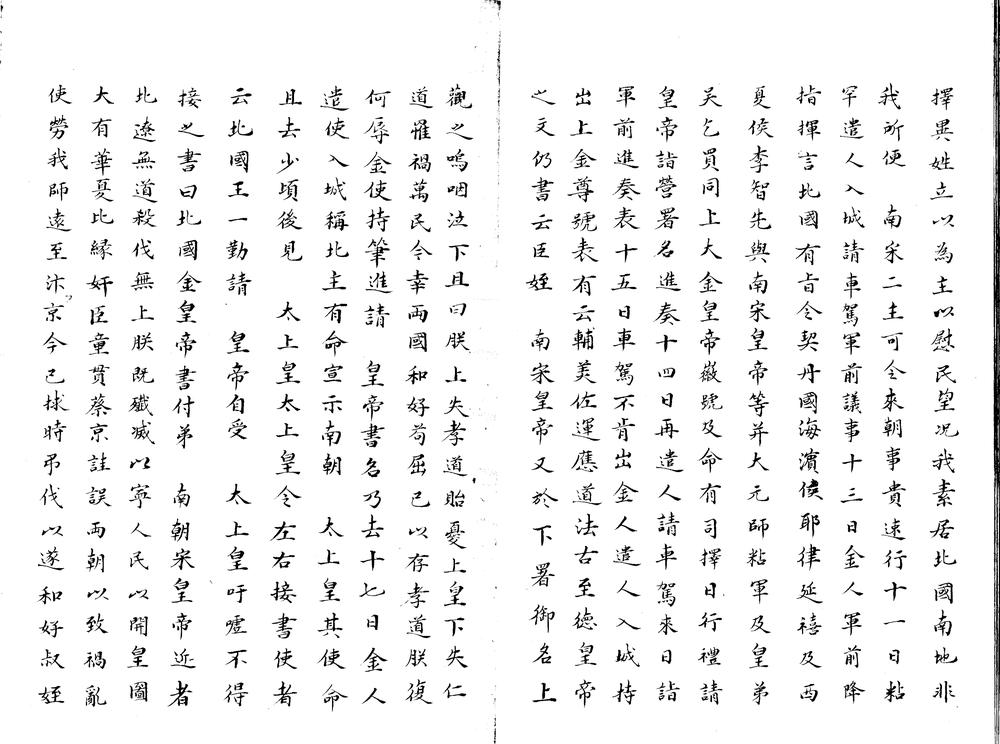 擇異姓立以為主以慰民望况我素居北國南地非
我所便　南宋二主可令來朝事貴速行十一日粘
罕遣人入城請車駕軍前議事十三日金人軍前降
指揮言北國有旨令契丹國海濱侯耶律延禧及西
夏侯李智先與南宋皇帝等并大元師粘軍及皇弟
吴乞買同上大金皇帝徽號及命有司擇日行禮請
皇帝詣營署名進奏十四日再遣人請車駕來日詣
軍前進奏表十五日車駕不肯出金人遣人入城持
出上金尊號表有云輔美佐運應道法古至德皇帝
之文仍書云臣姪　南宋皇帝又於下署御名上
觀之嗚咽泣下且曰朕上失孝道貽憂上皇下失仁
道罹禍萬民今幸両國和好苟屈己以存孝道朕復
何辱金使持筆進請　皇帝書名乃去十七日金人
遣使入城稱北主有命宣示南朝　太上皇其使命
且去少頃後見　太上皇太上皇令左右接書使者
云北國王一勤請　皇帝自受　太上皇吁嘘不得
接之書曰北國金皇帝書付弟　南朝宋皇帝近者
北遼無道殺伐無上朕既殲滅以寧人民以開皇圖
大有華憂比緣奸臣童貫蔡京詿誤両朝以致禍亂
使勞我師遠至汴京今已拯時弔伐以遂和好叔姪